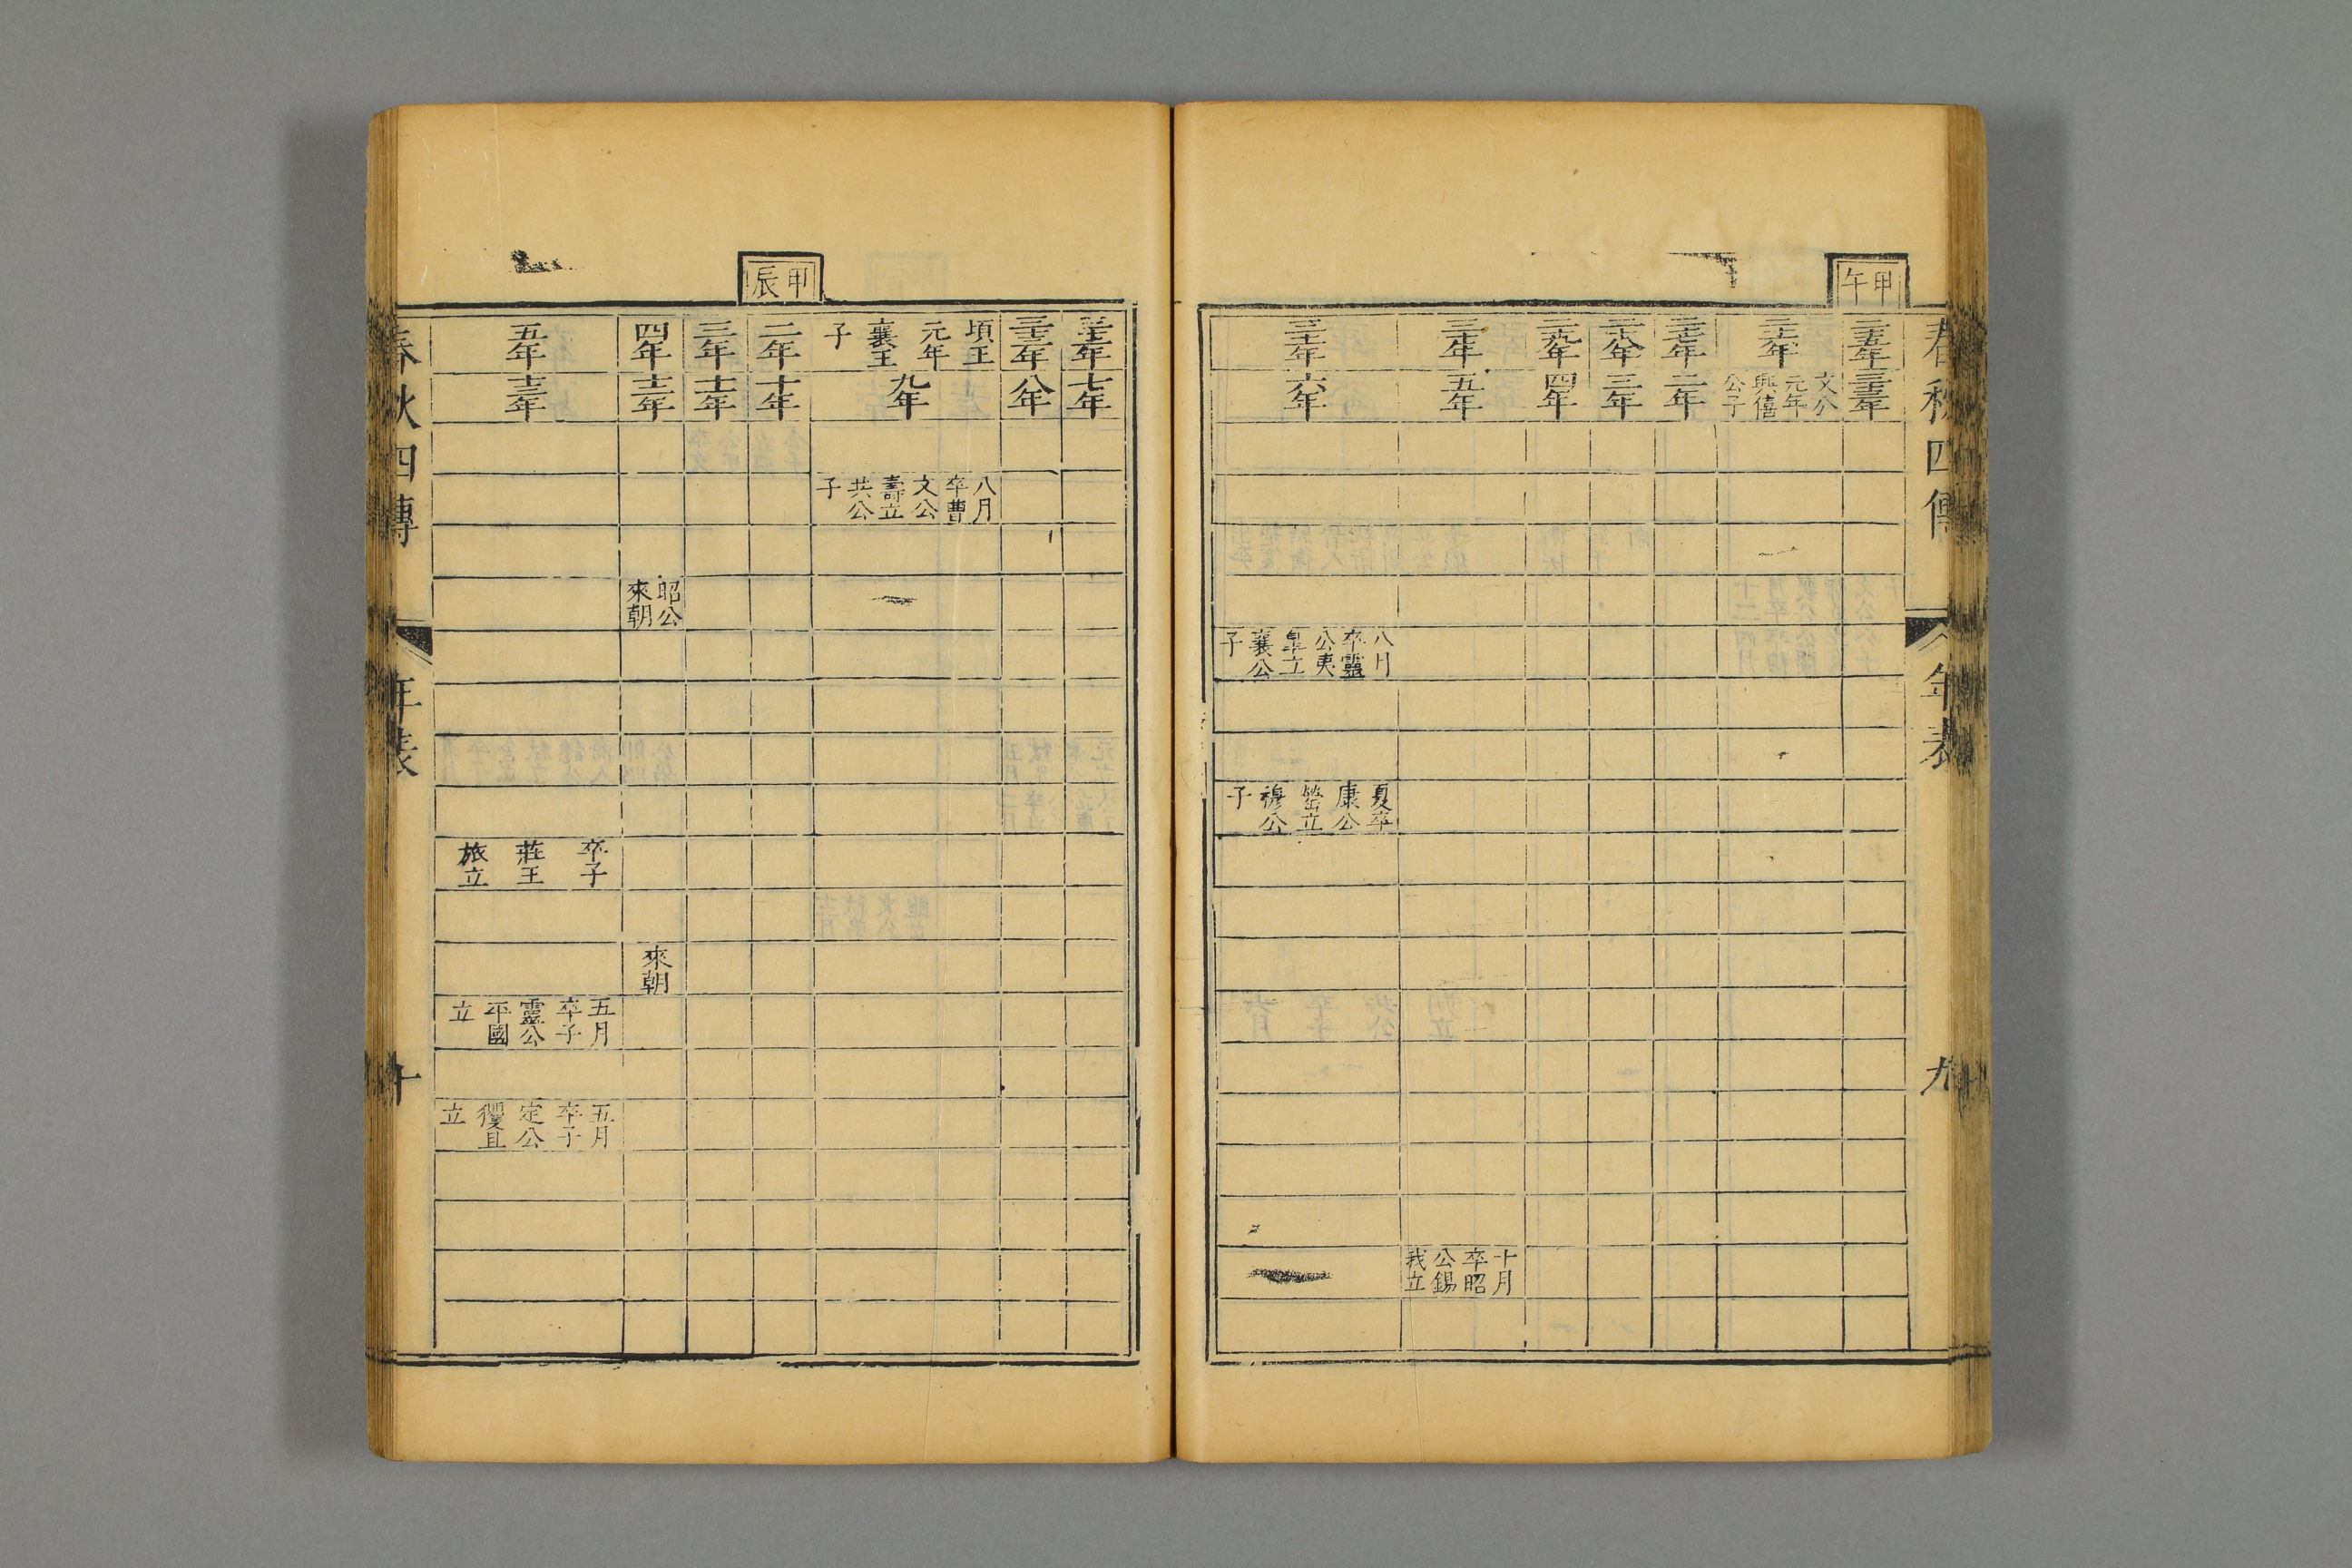 春秋四傳
年表
九
甲午
二十五年
三十三年
二十六年
文公元年興僖公子
二十七年
二年
二十八年
三年
二十九年
四年
三十年
五年
十月卒昭公錫我立
三十一年
六年
八月卒靈公夷皐立襄公子
夏卒康公罃立穆公子
三十二年
七年
三十三年
八年
頃王元年襄王子
九年
八月卒曹文公壽立共公子
甲辰
二年
十年
三年
十一年
四年
十二年
昭公來朝
來朝
五年
十三年
卒子莊王旅立
五月卒子靈公平國立
五月卒子定公貜且立
春秋四傳
年表
十